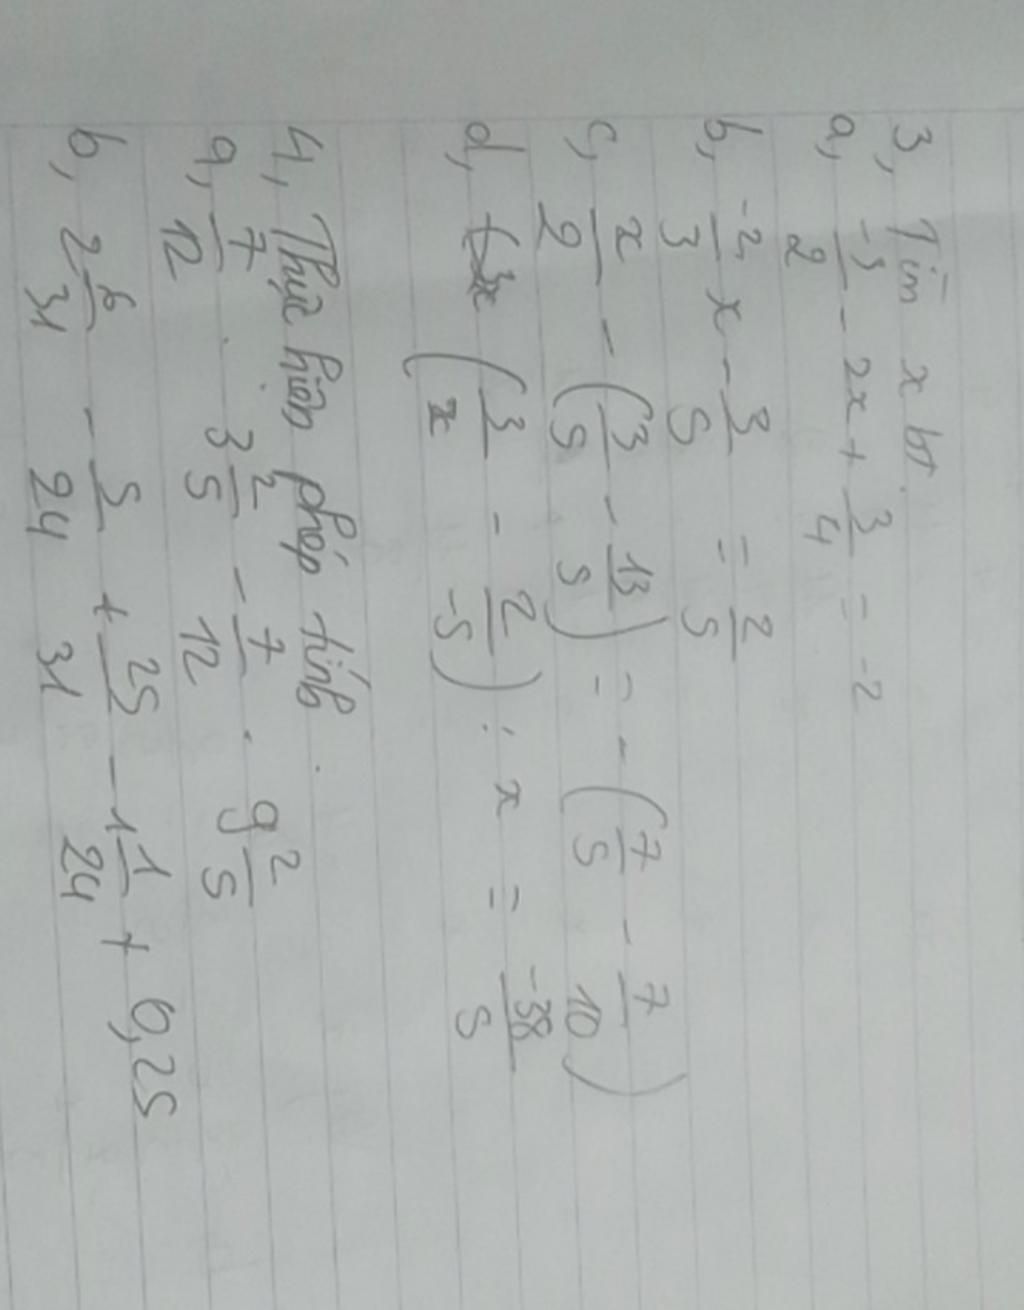 3, Tìm x bt
a, -3/2 - 2x + 3/4 = -2
b, -2/3 x - 3/5 = 2/5
c, x/2 - (3/5 - 13/5) = - (7/5 - 7/10)
d, (3/x - 2/-5) : x = -38/5
4, Thực hiện phép tính.
a, 7/12 . 3 2/5 - 7/12 . 9 2/5
b, 2 6/31 - 5/24 + 25/31 - 1 1/24 + 0,25